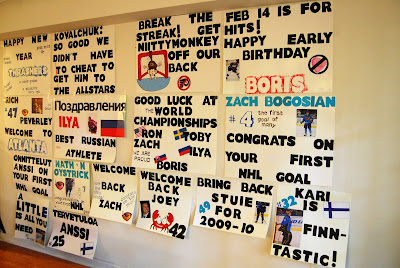 HAPPY NEW
YEAR
THRASHERS
RICH
#47
PEVERLEY
WELCOME TO
ATLANTA
ONNITTELUT
ANSSI ON
YOUR FIRST
NHL GOAL
A LITTLE
IS ALL YOU
NEED
KOVALCHUK:
SO GOOD WE
DIDN'T HAVE
TO CHEAT TO
GET HIM TO
THE ALLSTARS
Поздравления
ILYA
BEST RUSSIAN
ATHLETE
NATHAN
OYSTRICK
TERVETULOA
ANSSI
25
WELCOME
BACK
ZACH
BREAK THE
STREAK! GET
NIITTYMONKEY
OFF OUR
BACK
GOOD LUCK AT
THE WORLD
CHAMPIONSHIPS
RON
TOBY
ZACH
ILYA
WE ARE
PROUD
BORIS
WELCOME
BACK
JOEY
42
FEB 14 IS FOR
HITS!
HAPPY EARLY
BIRTHDAY
BORIS
ZACH BOGOSIAN
#4
the first
goal of
many
CONGRATS ON
YOUR FIRST
NHL GOAL
BRING BACK
49
STUIE
FOR
2009-10
KARI
#32
IS
FINN-
TASTIC!